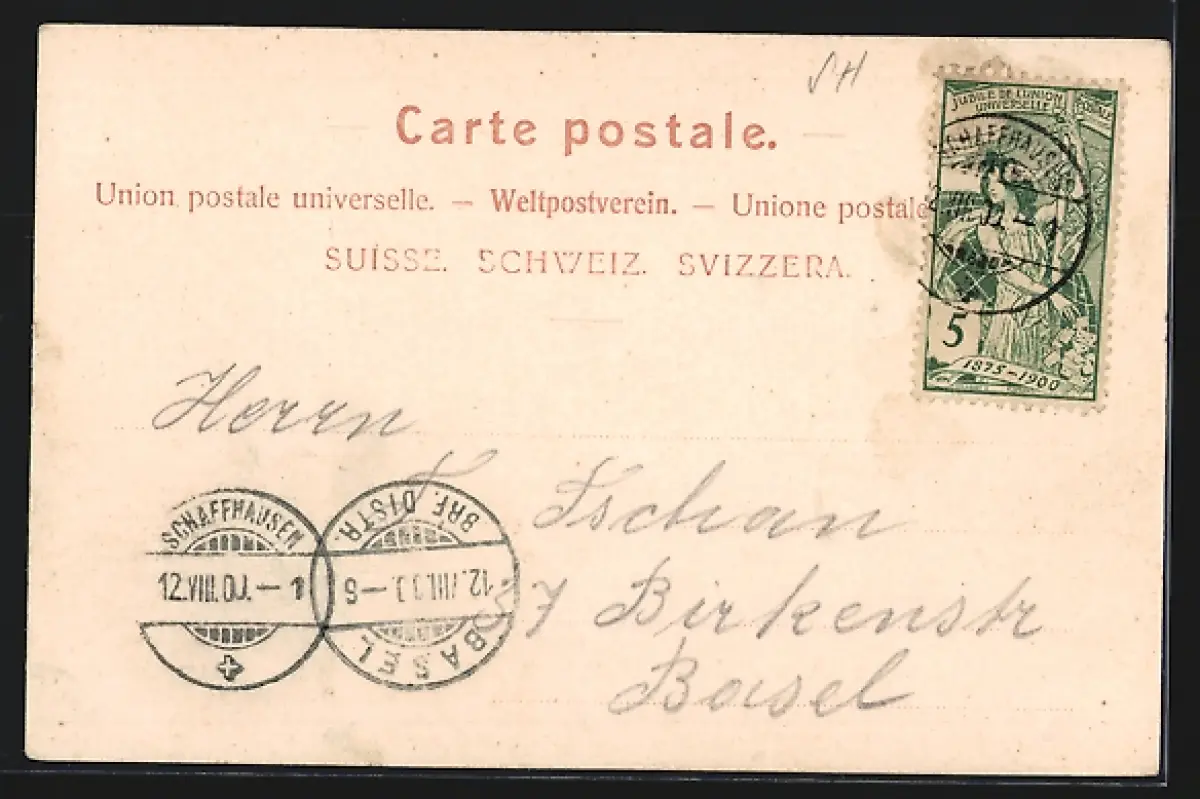 SH
Carte postale.
Union postale universelle. — Weltpostverein. — Unione postale
SUISSE. SCHWEIZ. SVIZZERA.
JUBILÉ DE L'UNION POSTALE
UNIVERSELLE
SCHAFFHAUSEN
VIII.00.
5
1875-1900
Herrn
Tschan
57 Birkenstr
Basel
SCHAFFHAUSEN
12.VIII.00.—1
BRF. DISTR.
12.VIII.00—6
BASEL